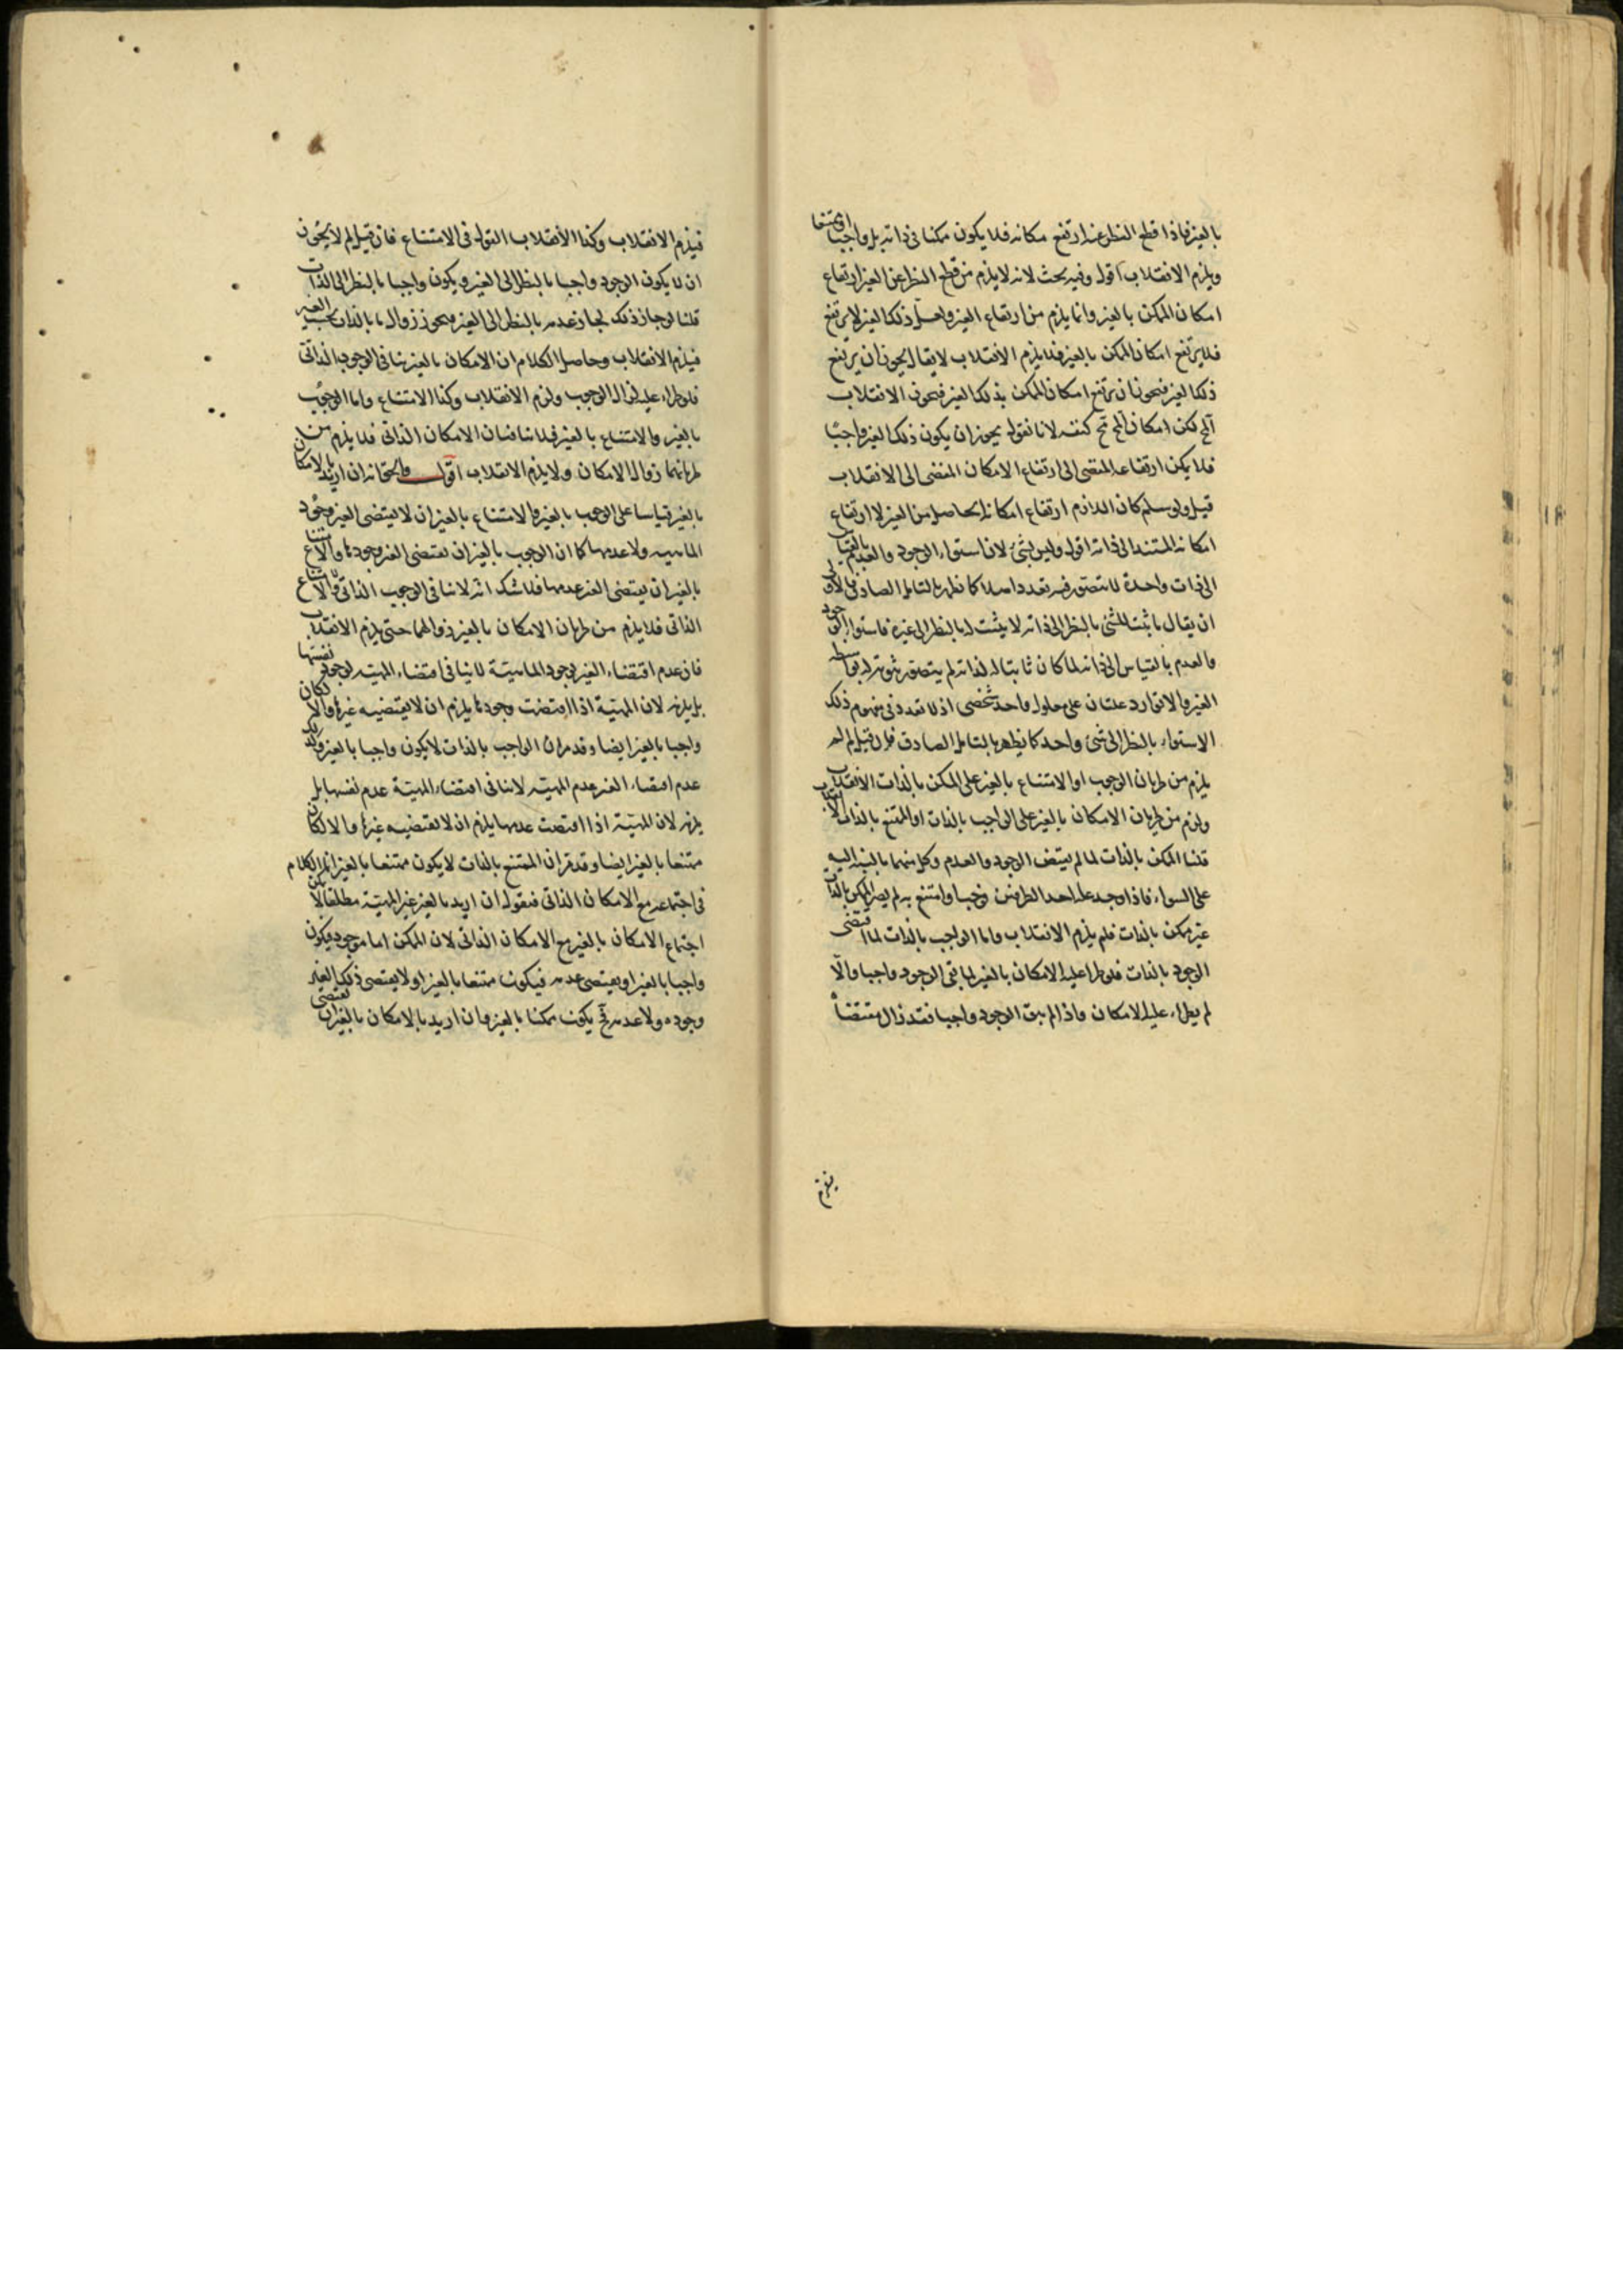 بالغير فاذا قطع النظر عنه ارتفع مكانه فلا يكون ممكنا فى ذاته بل واجبا او ممتنعا
ويلزم الانقلاب اقول وفيه بحث لانه لا يلزم من قطع النظر عن الغير ارتفاع
امكان الممكن بالغير وانما يلزم من ارتفاع الغير ولعل ذلك الغير لا يرتفع
فلا يرتفع امكان الممكن بالغير فلا يلزم الانقلاب لا يقال يجوز ان يرتفع
ذلك الغير فيجوز ان يرتفع امكان الممكن بذلك الغير فيجوز الانقلاب
المح لكن امكان المح مح كنفسه لانا نقول يجوز ان يكون ذلك الغير واجبا
فلا يمكن ارتفاعه المقتضى الى ارتفاع الامكان المفضى الى الانقلاب
قيل ولو سلم كان اللازم ارتفاع امكانه الحاصل من الغير لا ارتفاع
امكانه المستند الى ذاته اقول وليس بشئ لان استواء الوجود والعدم بالقياس
الى ذات واحدة لا يتصور فيه تعدد اصلا كما يظهر بالتامل الصادق فالاولى
ان يقال ما يثبت للشئ بالنظر الى ذاته لا يثبت له بالنظر الى غيره فاستواء الوجود
والعدم بالقياس الى ذاته لما كان ثابتا له لذاته لم يتصور ثبوته له بواسطه
الغير والا توارد علتان على معلول واحد شخصى اذ لا تعدد فى مفهوم ذلك
الاستواء بالنظر الى شئ واحد كما يظهر بالتامل الصادق فان قيل لم لم
يلزم من طريان الوجوب او الامتناع بالغير على الممكن بالذات الانقلاب
ولزم من طريان الامكان بالغير على الواجب بالذات او الممتنع بالذات الانقلاب
قلنا الممكن بالذات لما لم يقتض الوجود والعدم وكل منهما بالنسبة اليه
على السواء فاذا وجد علة احد الطرفين وجب او امتنع به لم يصر الممكن بالذات
غير ممكن بالذات فلم يلزم الانقلاب واما الواجب بالذات لما اقتضى
الوجود بالذات فلو طرا عليه الامكان بالغير لما بقى الوجود واجبا والا
لم يطراء عليه الامكان واذا لم يبق الوجود واجبا فقد زال مقتضاه
يلزم
فيلزم الانقلاب وكذا الانقلاب القول فى الامتناع فان قيل لم لا يجوز
ان لا يكون الوجود واجبا بالنظر الى الغير ويكون واجبا بالنظر الى الذات
قلنا لو جاز ذلك لجاز عدمه بالنظر الى الغير فيجوز زوال ما بالذات بحسب الغير
فيلزم الانقلاب وحاصل الكلام ان الامكان بالغير ينافى الوجوب الذاتى
فلو طراء عليه لزال الوجوب ولزم الانقلاب وكذا الامتناع واما الوجوب
بالغير والامتناع بالغير فلا ينافيان الامكان الذاتى فلا يلزم من
طريانهما زوال الامكان ولا يلزم الانقلاب اقول والحق انه ان اريد بالامكان
بالغير قياسا على الوجوب بالغير والامتناع بالغير ان لا يقتضى الغير وجود
الماهيه ولا عدمها كما ان الوجوب بالغير ان يقتضى الغير وجودها والامتناع
بالغير ان يقتضى الغير عدمها فلا شك انه لا ينافى الوجوب الذاتى والامتناع
الذاتى فلا يلزم من طريان الامكان بالغير زوالهما حتى يلزم الانقلاب
فان عدم اقتضاء الغير لوجود الماهيّة لا ينافى اقتضاء المهيّه لوجود نفسها
بل يلزمه لان المهيّة اذا اقتضت وجودها يلزم ان لا يقتضيه غيرها والا لكان
واجبا بالغير ايضا وقد مر ان الواجب بالذات لا يكون واجبا بالغير وكذا
عدم اقتضاء الغير عدم المهيّه لا ينافى اقتضاء المهيّة عدم نفسها بل
يلزمه لان المهيّة اذا اقتضت عدمها يلزم ان لا يقتضيه غيرها والا لكان
ممتنعا بالغير ايضا وقد مر ان الممتنع بالذات لا يكون ممتنعا بالغير انما الكلام
فى اجتماعه مع الامكان الذاتى فنقول ان اريد بالغير غير المهيّة مطلقا لا يمكن
اجتماع الامكان بالغير مع الامكان الذاتى لان الممكن اما موجود فيكون
واجبا بالغير او يقتضى عدمه فيكون ممتنعا بالغير او لا يقتضى ذلك الغير
وجوده ولا عدمه فح يكون ممكنا بالغير وان اريد بالامكان بالغير ان يقتضى